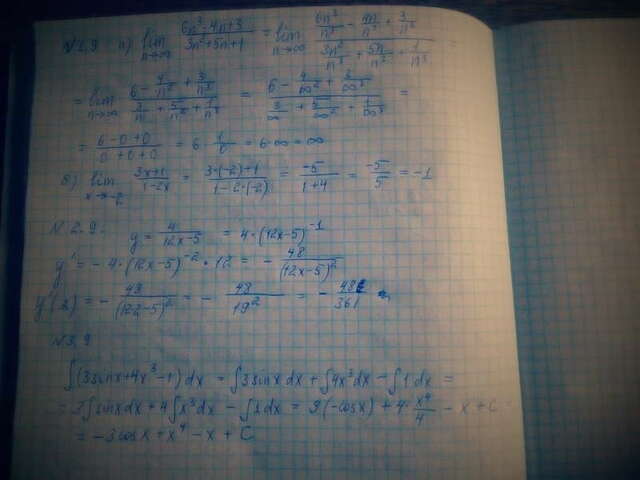 N 1.9 а) lim n→∞ (6n³-4n+3)/(3n²+5n+1) = lim n→∞ (6n³/n³ - 4n/n³ + 3/n³)/(3n²/n³ + 5n/n³ + 1/n³) =
= lim n→∞ (6 - 4/n² + 3/n³)/(3/n + 5/n² + 1/n³) = (6 - 4/∞² + 3/∞³)/(3/∞ + 5/∞² + 1/∞³) =
= (6-0+0)/(0+0+0) = 6 · 1/0 = 6·∞ = ∞
в) lim x→-2 (3x+1)/(1-2x) = (3·(-2)+1)/(1-2·(-2)) = -5/(1+4) = -5/5 = -1
N 2.9. y = 4/(12x-5) = 4·(12x-5)⁻¹
y' = -4·(12x-5)⁻²·12 = - 48/(12x-5)²
y'(2) = - 48/(12·2-5)² = - 48/19² = - 48/361
N 3.9
∫(3sinx+4x³-1)dx = ∫3sinx dx + ∫4x³dx - ∫1dx =
= 3∫sinxdx + 4∫x³dx - ∫1dx = 3(-cosx) + 4· x⁴/4 - x + C =
= -3cosx + x⁴ - x + C